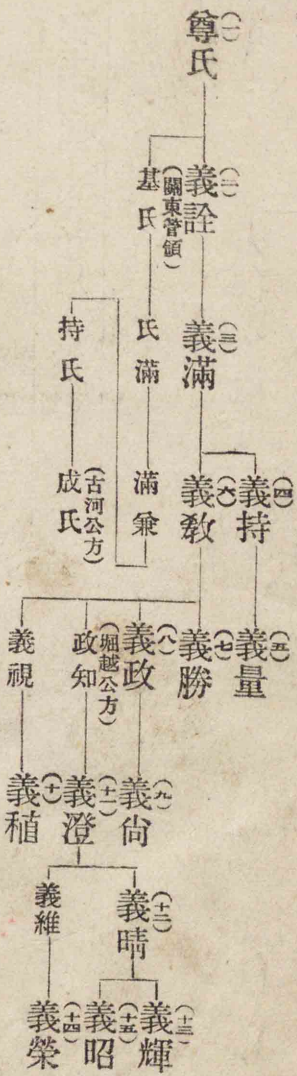 (一)
尊氏
(二)
義詮
(關東管領)
基氏
(三)
義滿
氏滿
持氏
(四)
義持
(六)
義敎
滿兼
(古河公方)
成氏
(五)
義量
(七)
義勝
(八)
義政
(堀越公方)
政知
義視
(九)
義尙
(十一)
義澄
(十)
義稙
(十二)
義晴
義維
(十三)
義輝
(十五)
義昭
(十四)
義榮